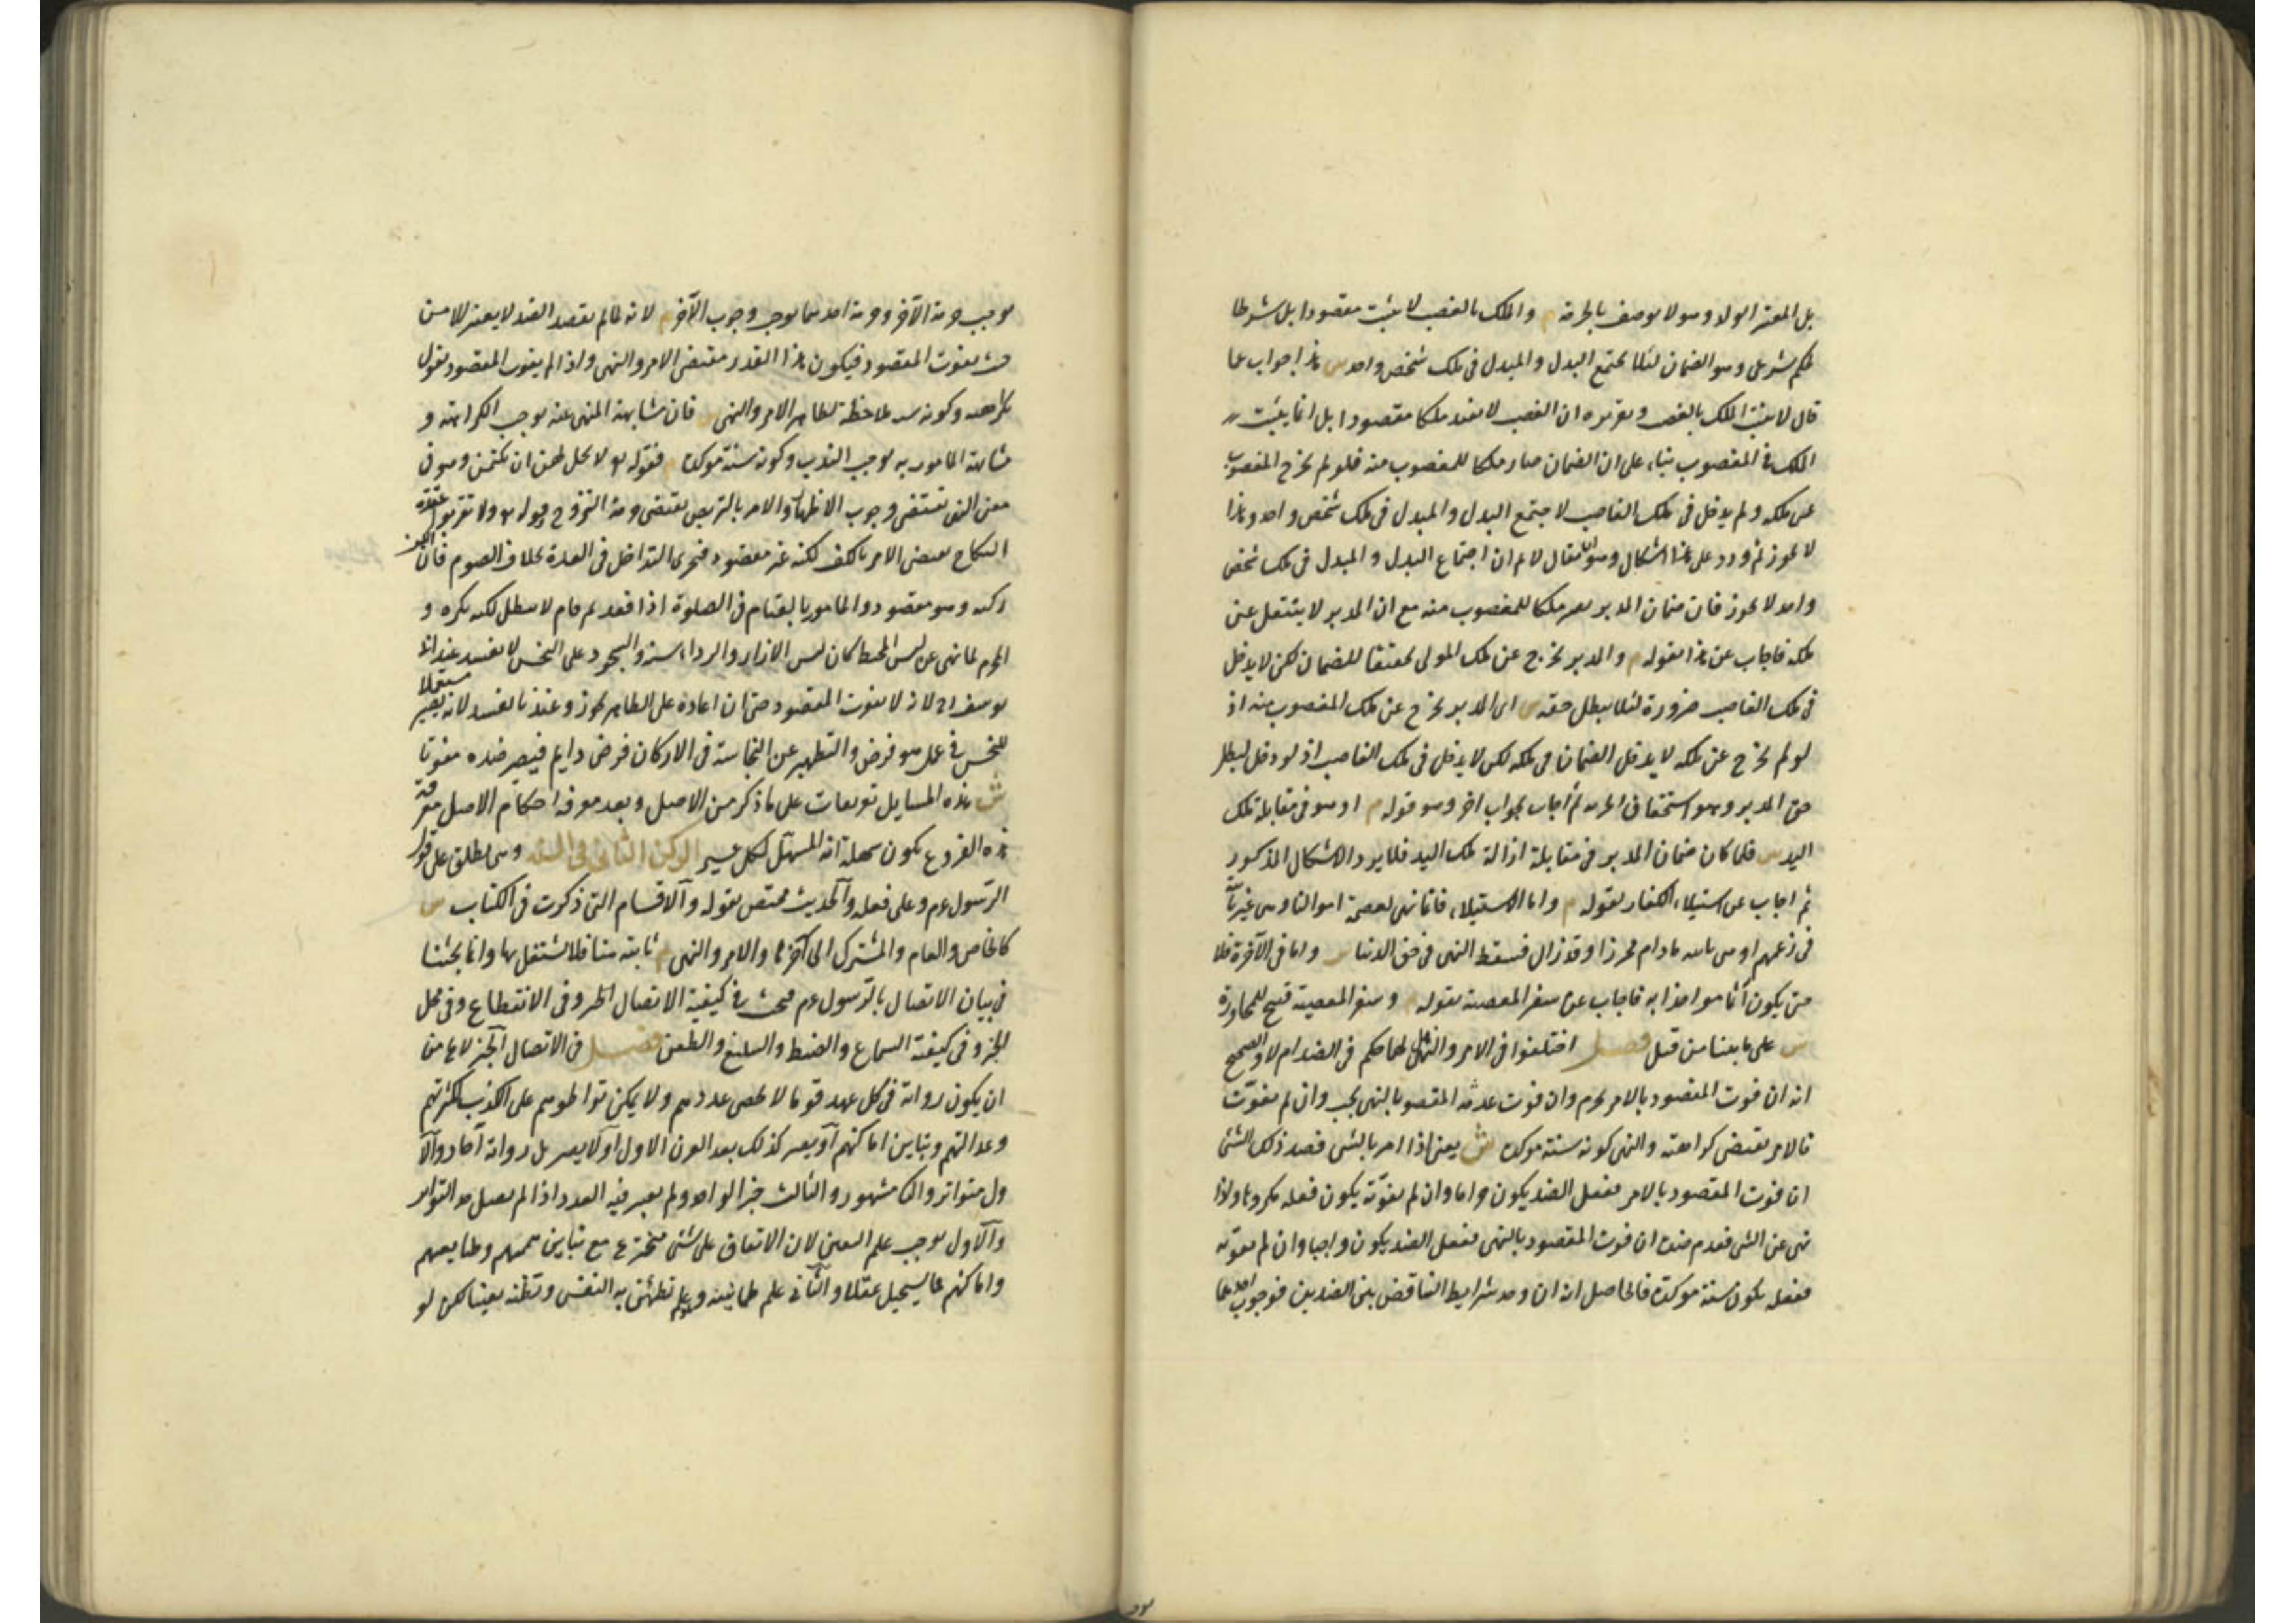 بل المعتبر الولد وهو لا يوصف بالحرمة م والملك بالغصب لا يثبت مقصودا بل شرطا
لحكم شرعى وهو الضمان لئلا يجتمع البدل والمبدل فى ملك شخص واحد ش هذا جواب عما
قال لا يثبت الملك بالغصب وتقريره ان الغصب لا يفيد ملكا مقصودا بل انما يثبت
الملك فى المغصوب بناء على ان الضمان صار ملكا للمغصوب منه فلو لم يخرج المغصوب
عن ملكه ولم يدخل فى ملك الغاصب لاجتمع البدل والمبدل فى ملك شخص واحد وهذا
لا يجوز ثم ورد على هذا اشكال وهو انا يقال لا م ان اجتماع البدل والمبدل فى ملك شخص
واحد لا يجوز فان ضمان المدبر يصير ملكا للمغصوب منه مع ان المدبر لا ينتقل عن
ملكه فاجاب عن هذا بقوله م والمدبر يخرج عن ملك المولى تحقيقا للضمان لكن لا يدخل
فى ملك الغاصب ضرورة لئلا يبطل حقه ش اى المدبر يخرج عن ملك المغصوب منه اذ
لو لم يخرج عن ملكه لا يدخل الضمان فى ملكه لكن لا يدخل فى ملك الغاصب اذ لو دخل لبطل
حق المدبر وهو استحقاق الحرية ثم أجاب بجواب اخر وهو قوله م او هو فى مقابلة ملك
اليد ش فلما كان ضمان المدبر فى مقابلة ازالة ملك اليد فلا يرد الاشكال المذكور
ثم اجاب عن استيلاء الكفار بقوله م واما الاستيلاء فانما نهى لعصمة اموالنا وهى غير ثابتة
فى زعمهم او هى ثابتة ما دام محرزا وقد زال فسقط النهى فى حق الدنيا ش واما فى الآخرة فلا
حتى يكون آثما مواخذا به فاجاب عن سفر المعصية بقوله م وسفر المعصية قبيح للمجاورة
ش على ما بينا من قبل فصل اختلفوا فى الامر والنهى هل لهما حكم فى الضد ام لا والصحيح
انه ان فوت المقصود بالامر يحرم وان فوت عدمه المقصود بالنهى يجب وان لم يفوت
فالامر يقتضى كراهته والنهى كونه سنة موكدة ش يعنى اذا امر بالشئ فضد ذلك الشئ
ان فوت المقصود بالامر ففعل الضد يكون حراما وان لم يفوته يكون فعله مكروها واذا
نهى عن الشئ فعدم ضده ان فوت المقصود بالنهى ففعل الضد يكون واجبا وان لم يفوته
ففعله يكون سنة موكدة فالحاصل انه ان وجد شرايط التناقض بين الضدين فوجوب احدهما
يوجب حرمة الآخر وحرمة احدهما يوجب وجوب الآخر م لانه لما لم يقصد الضد لا يعتبر الا من
حيث يفوت المقصود فيكون هذا القدر مقتضى الامر والنهى واذا لم يفوت المقصود نقول
بكراهته وكونه سنة ملاحظة لظاهر الامر والنهى ش فان مشابهة المنهى عنه يوجب الكراهة و
مشابهة المامور به يوجب الندب وكونه سنة موكدة م فقوله تع لا يحل لهن ان يكتمن وهو فى
معنى النهى يقتضى وجوب الاظهار والامر بالتربص يقتضى حرمة التزوج وقوله تع ولا تعزموا عقدة
النكاح يقتضى الامر بالكف لكنه غير مقصود فيجرى التداخل فى العدة بخلاف الصوم فان الكف
ركنه وهو مقصود والمامور بالقيام فى الصلوة اذا قعد ثم قام لا يبطل لكنه يكره و
المحرم لما نهى عن لبس المخيط كان لبس الازار والرداء سنة والسجود على النجس لا يفسد عند ابى
يوسف رح لانه لا يفوت المقصود حتى ان اعاده على الطاهر يجوز وعندنا يفسد لانه يصير مستعملا
للنجس فى عمل هو فرض والتطهير عن النجاسة فى الاركان فرض دايم فيصير ضده مفوتا
ش هذه المسايل تفريعات على ما ذكر من الاصل وبعد معرفة احكام الاصل معرفة
هذه الفروع يكون سهلة انه المسهل لكل عسير الركن الثانى فى السنة وهى يطلق على قول
الرسول عم وعلى فعله والحديث مختص بقوله والاقسام التى ذكرت فى الكتاب ش
كالخاص والعام والمشترك الى آخرها والامر والنهى م ثابتة هنا فلا نشتغل بها وانما بحثنا
فى بيان الاتصال بالرسول عم فبحث فى كيفية الاتصال الخ وفى الانقطاع وفى محل
الخبر وفى كيفية السماع والضبط والتبليغ والطعن فصل فى الاتصال الخبر لا يخ من
ان يكون رواته فى كل عهد قوما لا يحصى عددهم ولا يمكن تواطؤهم على الكذب لكثرتهم
وعدالتهم وتباين اماكنهم أو يصير كذلك بعد القرن الاول أو لا يصير بل رواته آحاد والأ
ول متواتر والثانى مشهور والثالث خبر الواحد ولم يعتبر فيه العدد اذا لم يصل حد التواتر
والأول يوجب علم اليقين لان الاتفاق على شئ مخترع مع تباين هممهم وطبايعهم
واماكنهم مما يستحيل عقلا والثانى علم طمانينة وهو علم تطمئن به النفس وتظنه يقينا لكن لو